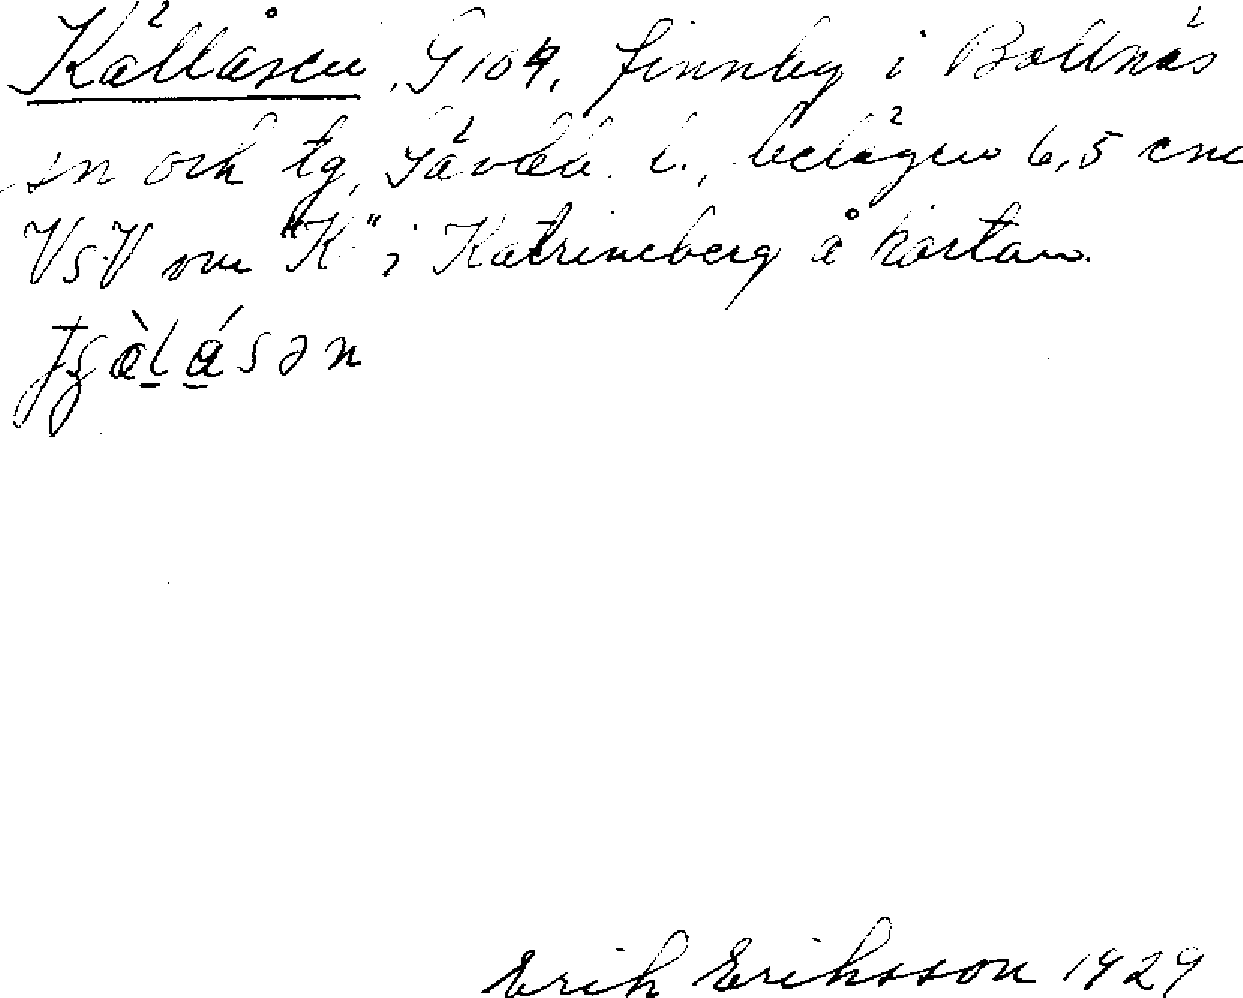 Källåsen, G 104, finnby i Bollnäs
sn och tg, Gävleb. l., belägen 6,5 cm
VSV om "K" i Katrineberg å kartan.
Erik Eriksson 1929